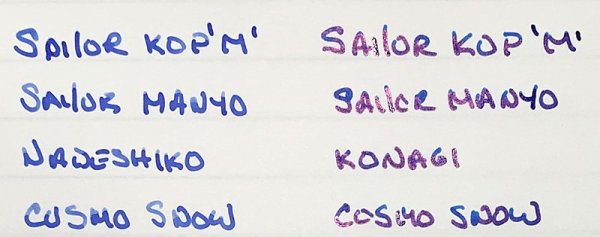 SAILOR KOP 'M'
SAILOR MANYO
NADESHIKO
COSMO SNOW
SAILOR KOP 'M'
SAILOR MANYO
KONAGI
COSMO SNOW